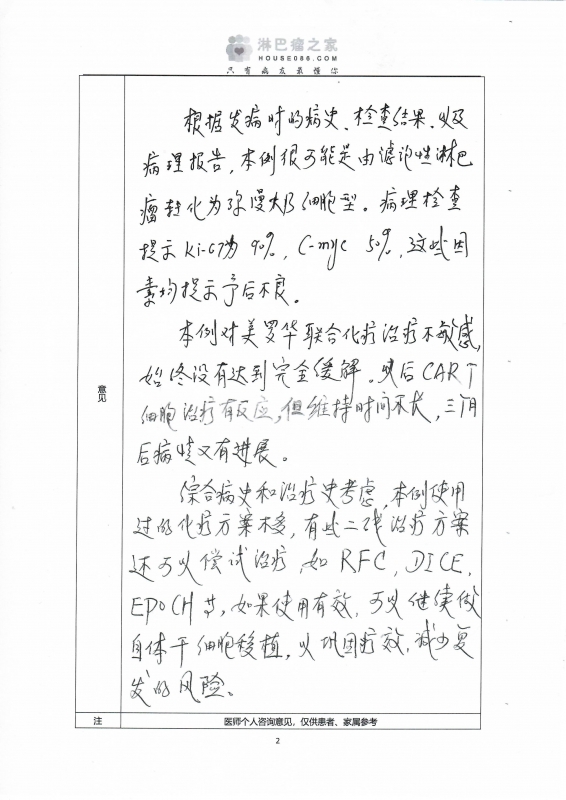 淋巴瘤之家
HOUSE086.COM
只有病友最懂你
根据发病时的病史、检查结果、以及
病理报告,本例很可能是由滤泡性淋巴
瘤转化为弥漫大B细胞型。病理检查
提示Ki-67为90%,C-myc 50%,这些因
素均提示予后不良。
本例对美罗华联合化疗治疗不敏感,
始终没有达到完全缓解。以后CAR T
细胞治疗有反应,但维持时间不长,三个月
后病情又有进展。
意见
综合病史和治疗史考虑,本例使用
过的化疗方案不多,有些二线治疗方案
还可以偿试治疗,如RFC,DICE,
EPOCH等,如果使用有效,可以继续做
自体干细胞移植,以巩固疗效,减少复
发的风险。
注
医师个人咨询意见,仅供患者、家属参考
2